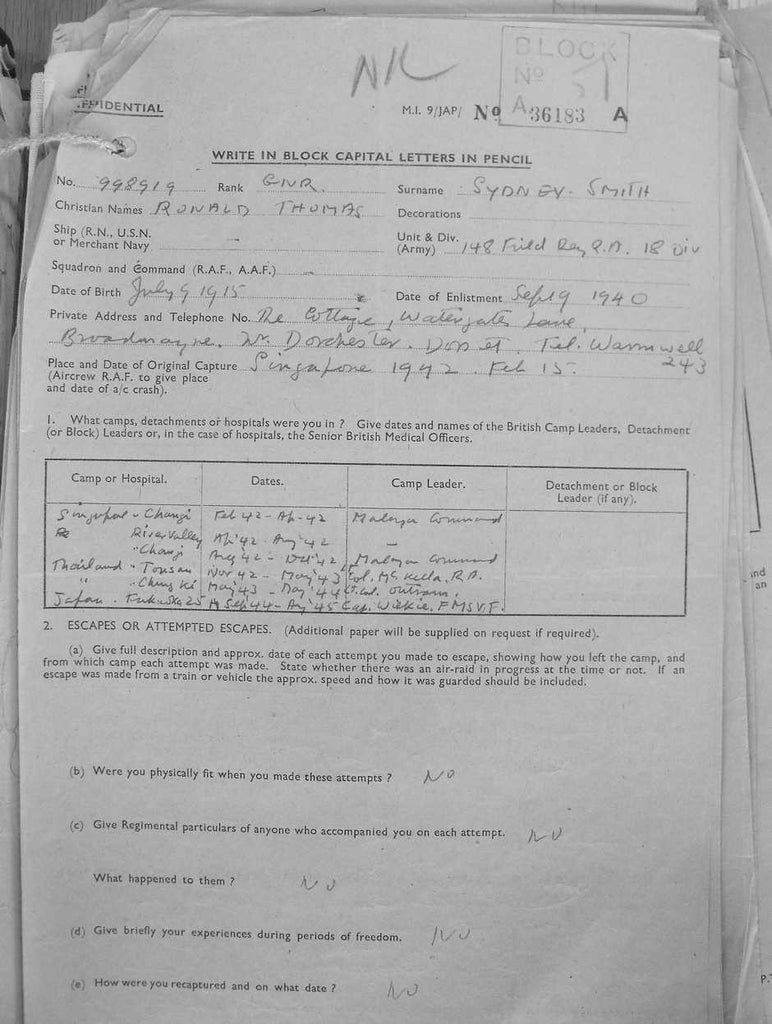 NIL
BLOCK
Nº 51
FIDENTIAL
M.I. 9/JAP/ Nº A 36183 A
WRITE IN BLOCK CAPITAL LETTERS IN PENCIL
No. 998919 Rank GNR. Surname SYDNEY-SMITH
Christian Names RONALD THOMAS Decorations
Ship (R.N., U.S.N. or Merchant Navy — Unit & Div. (Army) 148 Field Reg R.A. 18 Div
Squadron and Command (R.A.F., A.A.F.) —
Date of Birth July 9 1915 Date of Enlistment Sept 9 1940
Private Address and Telephone No. The Cottage, Watergates Lane,
Broadmayne, Nr. Dorchester. Dorset. Tel. Warmwell 243
Place and Date of Original Capture Singapore 1942. Feb 15.
(Aircrew R.A.F. to give place
and date of a/c crash).
1. What camps, detachments or hospitals were you in ? Give dates and names of the British Camp Leaders, Detachment
(or Block) Leaders or, in the case of hospitals, the Senior British Medical Officers.
Camp or Hospital. Dates. Camp Leader. Detachment or Block Leader (if any).
Singapore - Changi Feb 42 - Ap - 42 Malaya Command
River Valley Ap '42 - Aug '42 —
" Changi Aug '42 - Oct '42 Malaya Command
Thailand - Tonsan Nov 42 - May '43 Col. Mc Kella, R.A.
" - Chung Kai May '43 - '44 Lt. Col. Outram.
Japan. Fukuoka 25 Sep '44 - Aug '45 Cap. Wilkie. F.M.S.V.F.
2. ESCAPES OR ATTEMPTED ESCAPES. (Additional paper will be supplied on request if required).
(a) Give full description and approx. date of each attempt you made to escape, showing how you left the camp, and
from which camp each attempt was made. State whether there was an air-raid in progress at the time or not. If an
escape was made from a train or vehicle the approx. speed and how it was guarded should be included.
(b) Were you physically fit when you made these attempts ? NO
(c) Give Regimental particulars of anyone who accompanied you on each attempt. NO
What happened to them ? NO
(d) Give briefly your experiences during periods of freedom. NO
(e) How were you recaptured and on what date ? NO
ind
an
P.